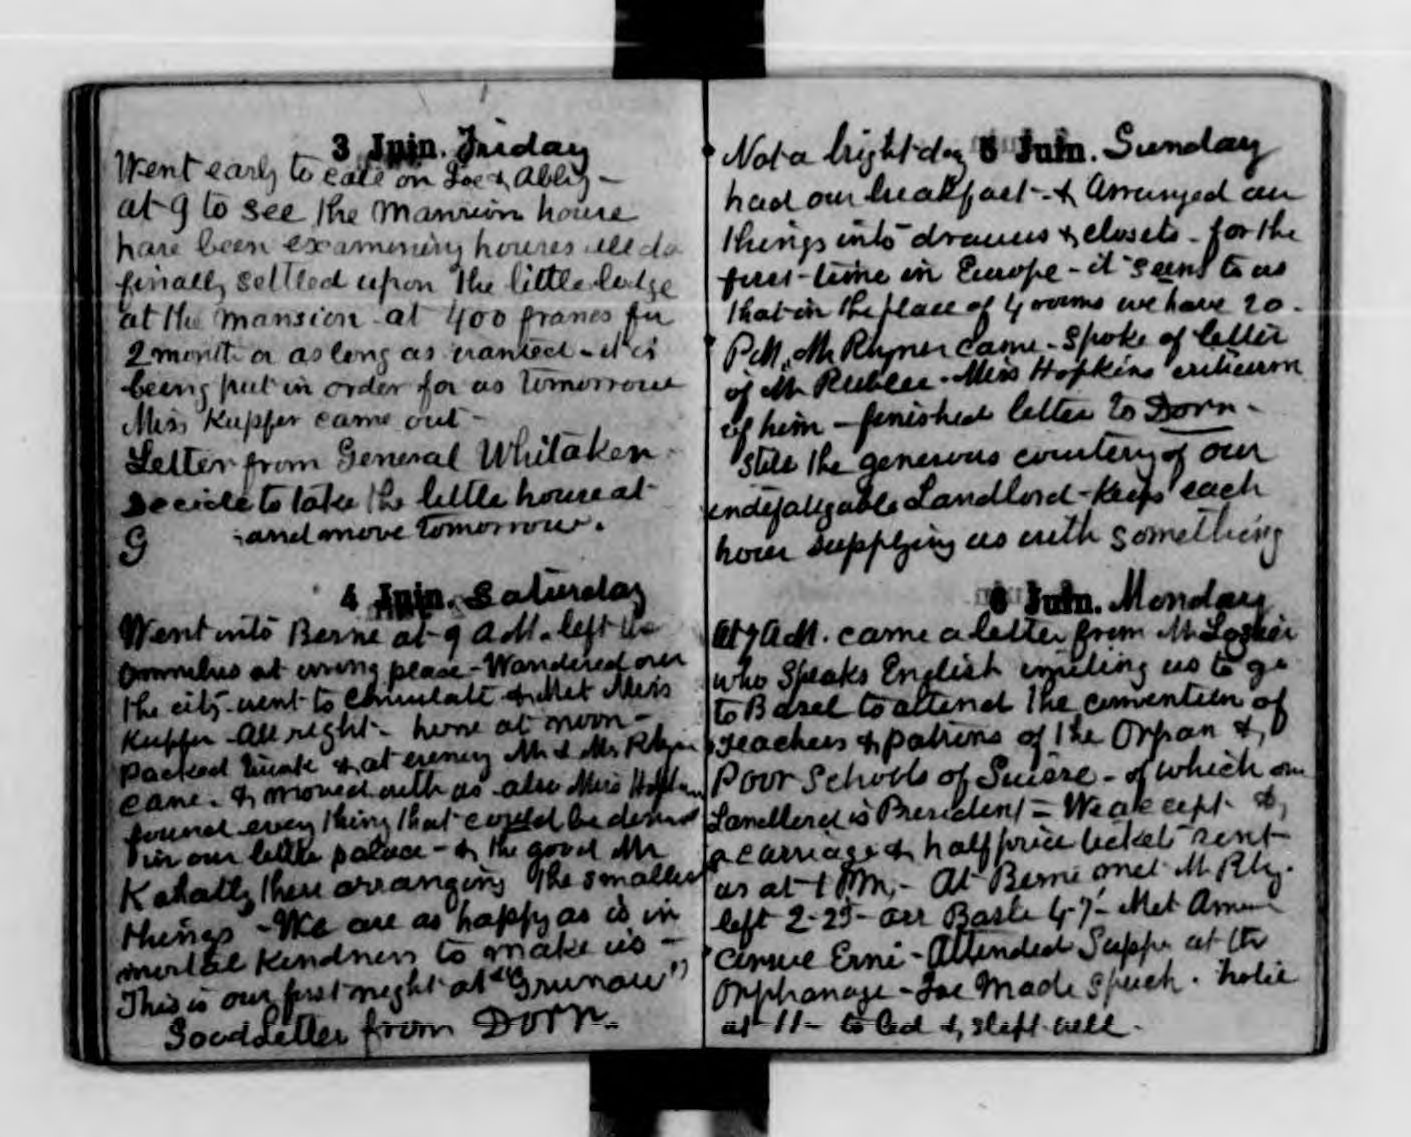 3 Juin. Friday
Went early to call on Joe & Abby -
at 9 to see the Mansion house
have been examining houses all da
finally settled upon the little lodge
at the mansion at 400 francs for
2 month or as long as wanted - it is
being put in order for us tomorrow
Miss Kupfer came out -
Letter from General Whitaker.
Decide to take the little house at
G and move tomorrow.
4 Juin. Saturday
Went into Berne at 9 A.M. left the
omnibus at wrong place - Wandered over
the city went to Consulate & Met Miss
Kupfer - All right - home at noon -
packed & at evening Mr & Mrs
came. & moved with us - also Miss Hopkins
found every thing that could be desired
in our little palace - & the good Mr
there arranging the smallest
things - We are as happy as is in
mortal kindness to make us -
This is our first night at "Grunau"
Good Letter from Dorn.
5 Juin. Sunday
Not a bright day
had our breakfast - & Arranged all
things into drawers & closets - for the
first time in Europe - it seems to us
that in the place of 4 rooms we have 20 -
P.M. Mr Rymer came - Spoke of letter
of Mr Rublee - Miss Hopkins criticism
of him - finished letter to Dorn -
Still the generous courtesy of our
indefatigable Landlord - keeps each
hour supplying us with something
6 Juin. Monday
At 7 A.M. came a letter from Mr
who speaks English inviting us to go
to Basel to attend the convention of
Teachers & patrons of the Orphan &
Poor Schools of Suisse - of which our
Landlord is President = We accept &
a carriage & half price tickets sent
us at 1 P.M. - At Berne met M
left 2-25 - arr Basle 4-7 - Met
Erni - Attended Supper at the
Orphanage - Joe Made Speech.
at 11 - to bed & slept well.